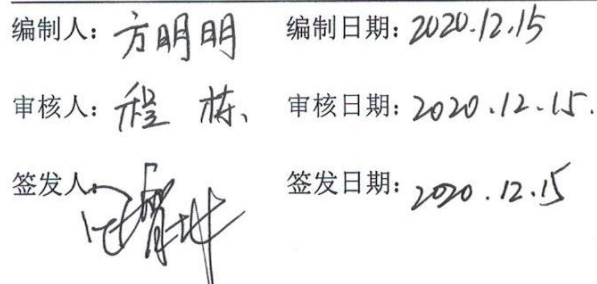 编制人：方明明 编制日期：2020.12.15
审核人：程栋 审核日期：2020.12.15.
签发人： 签发日期：2020.12.15